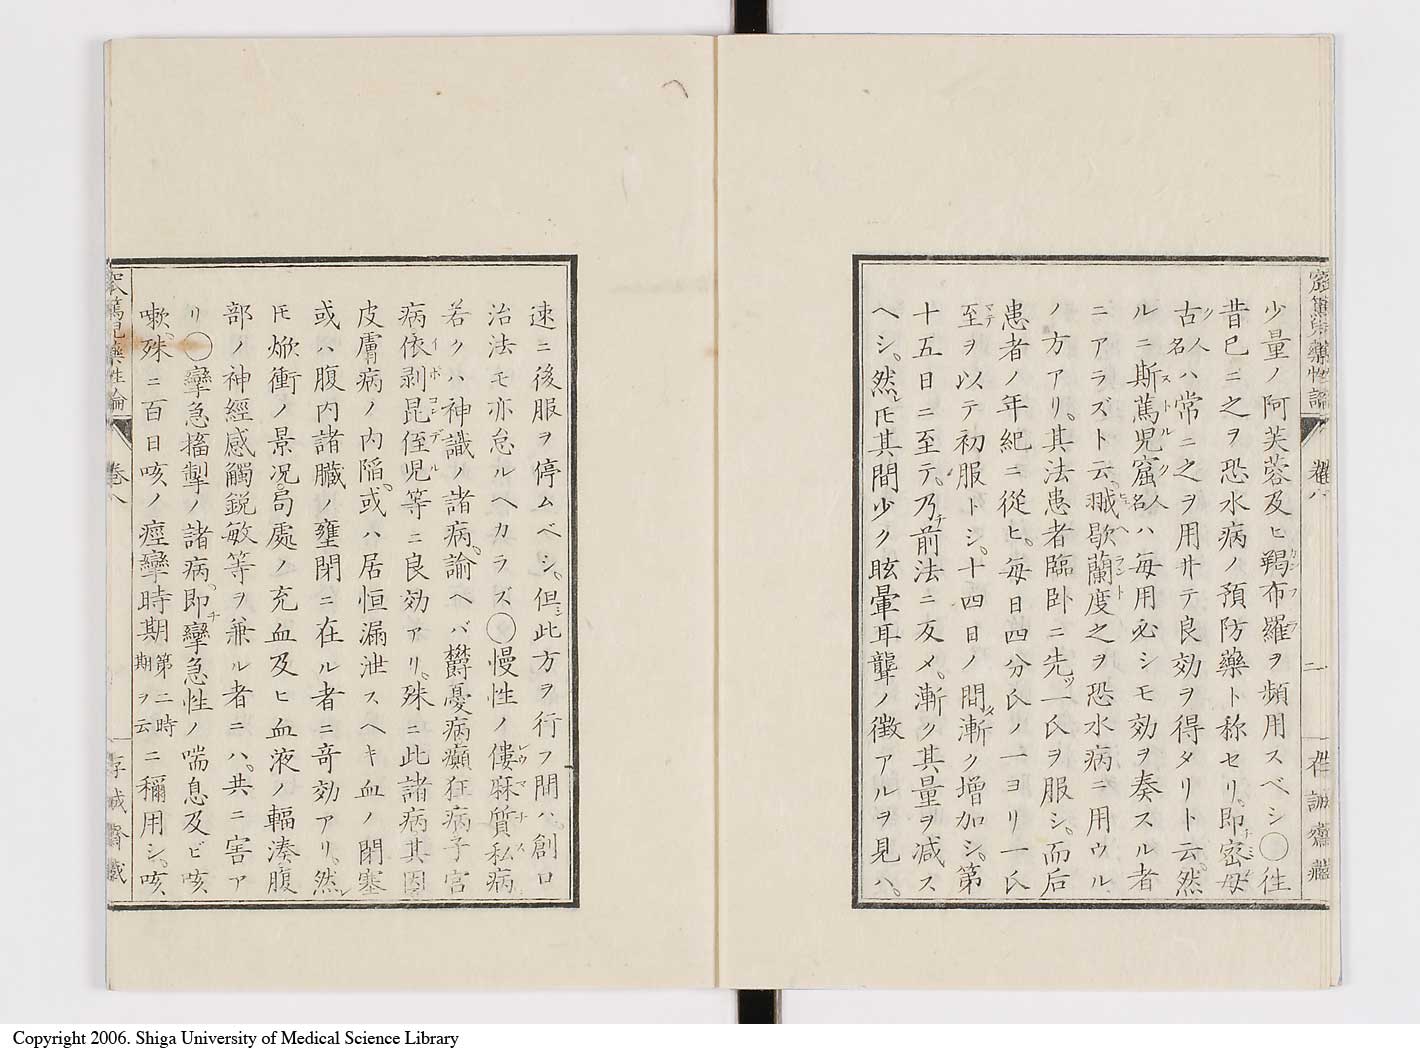 少量ノ阿芙蓉及ヒ羯布羅ヲ頻用スベシ〇往
昔已ニ之ヲ恐水病ノ預防藥ト称セリ即密母
古人名ハ常ニ之ヲ用井テ良効ヲ得タリト云然
ルニ斯篤児窟人名ハ毎用必シモ効ヲ奏スル者
ニアラズト云歇蘭度之ヲ恐水病ニ用ウル
ノ方アリ其法患者臨卧ニ先ッ一氏ヲ服シ而后
患者ノ年紀ニ從ヒ毎日四分氏ノ一ヨリ一氏
至ヲ以テ初服トシ十四日ノ間漸ク增加シ第
十五日ニ至テ乃前法ニ反メ漸ク其量ヲ減ス
ヘシ然𪜈其間少ク眩暈耳聾ノ徴アルヲ見ハ
速ニ後服ヲ停ムベシ但此方ヲ行フ間ハ創口
治法モ亦怠ルヘカラズ〇慢性ノ僂麻質私病
若クハ神識ノ諸病諭ヘバ欝憂病癲狂病子宮
病依剥昆垤児等ニ良効アリ殊ニ此諸病其因
皮膚病ノ内陷或ハ居恒漏泄スヘキ血ノ閉塞
或ハ腹内諸臓ノ壅閉ニ在ル者ニ奇効アリ然
𪜈焮衝ノ景况局處ノ充血及ヒ血液ノ輻湊腹
部ノ神經感觸鋭敏等ヲ兼ル者ニハ共ニ害ア
リ〇攣急搐掣ノ諸病即攣急性ノ喘息及ビ咳
嗽殊ニ百日咳ノ痙攣時期第二時期ヲ云ニ稱用シ咳
窊篤児藥性論
卷八
二
存誠齋藏
Copyright 2006. Shiga University of Medical Science Library